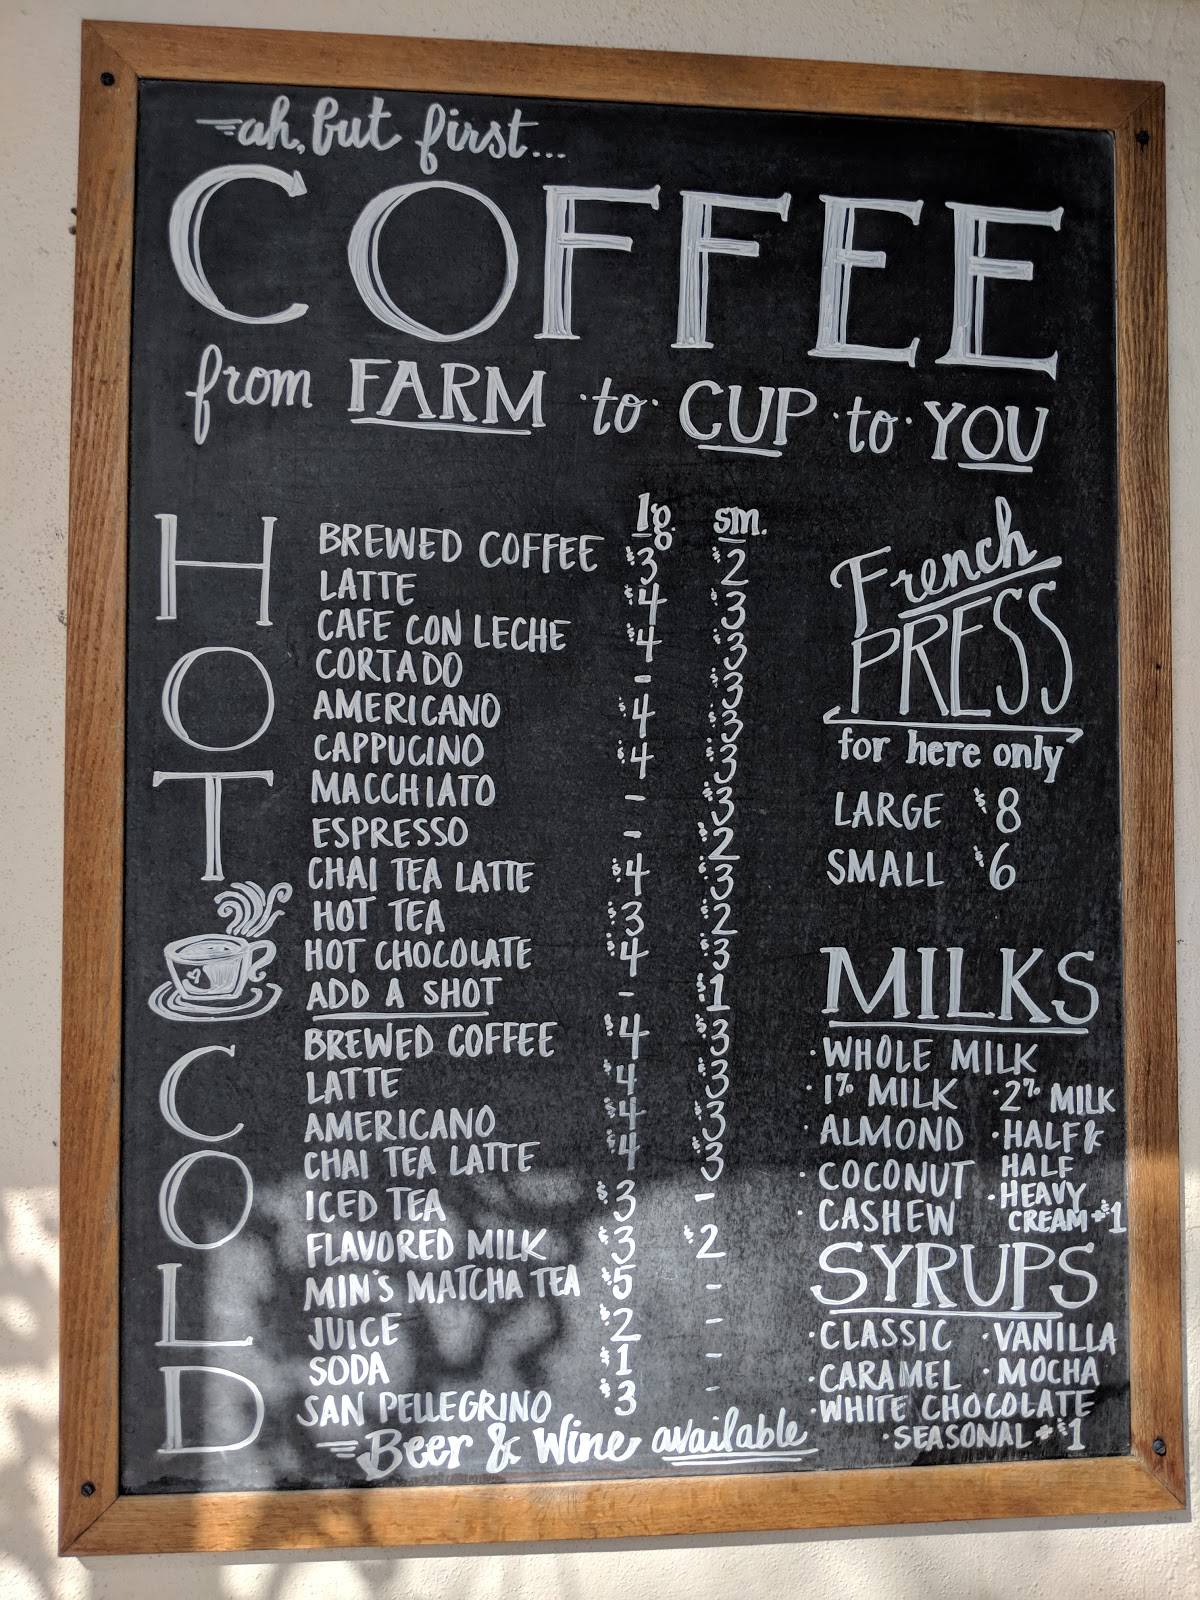 ah, but first...
COFFEE
from FARM to CUP to YOU
lg. sm.
HOT
BREWED COFFEE $3 $2
LATTE $4 $3
CAFE CON LECHE $4 $3
CORTADO - $3
AMERICANO $4 $3
CAPPUCINO $4 $3
MACCHIATO - $3
ESPRESSO - $2
CHAI TEA LATTE $4 $3
HOT TEA $3 $2
HOT CHOCOLATE $4 $3
ADD A SHOT - $1
COLD
BREWED COFFEE $4 $3
LATTE $4 $3
AMERICANO $4 $3
CHAI TEA LATTE $4 $3
ICED TEA $3 -
FLAVORED MILK $3 $2
MIN'S MATCHA TEA $5 -
JUICE $2 -
SODA $1 -
SAN PELLEGRINO $3 -
Beer & Wine available
French
PRESS
for here only
LARGE $8
SMALL $6
MILKS
· WHOLE MILK
· 1% MILK · 2% MILK
· ALMOND · HALF &
HALF
· COCONUT · HEAVY
CREAM +$1
· CASHEW
SYRUPS
· CLASSIC · VANILLA
· CARAMEL · MOCHA
· WHITE CHOCOLATE
· SEASONAL +$1